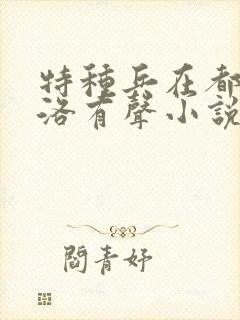 特種兵在都
洛有聲小說
閻青妤